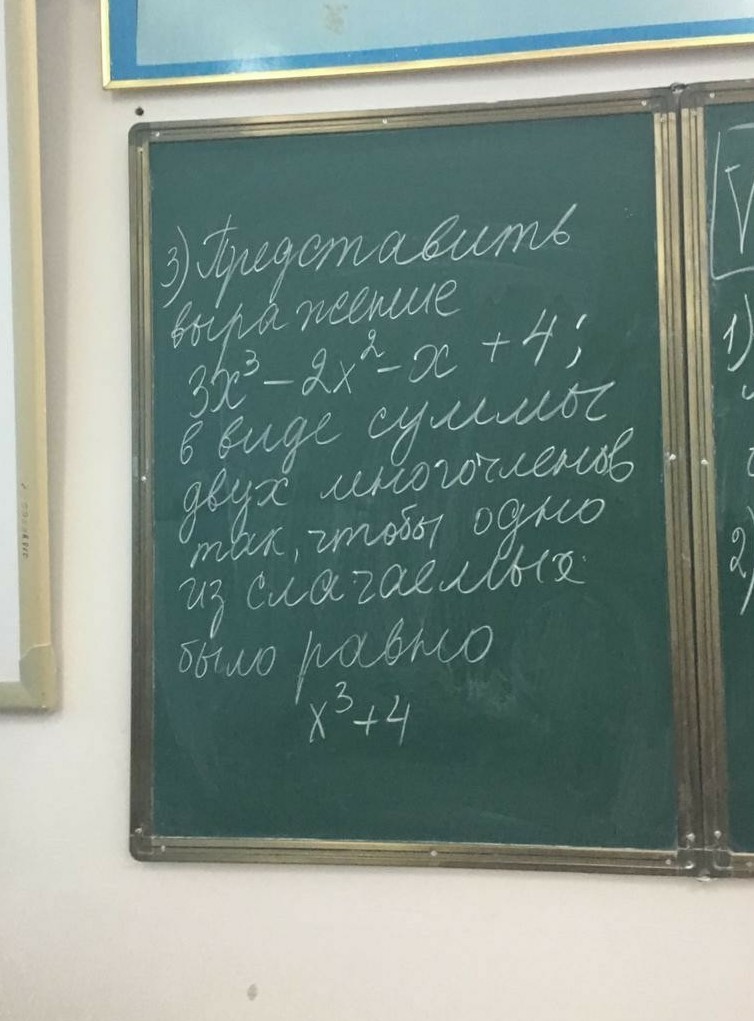 3) Представить
выражение
3x³ - 2x² - x + 4;
в виде суммы
двух многочленов
так, чтобы одно
из слагаемых
было равно
x³ + 4
1)
2)